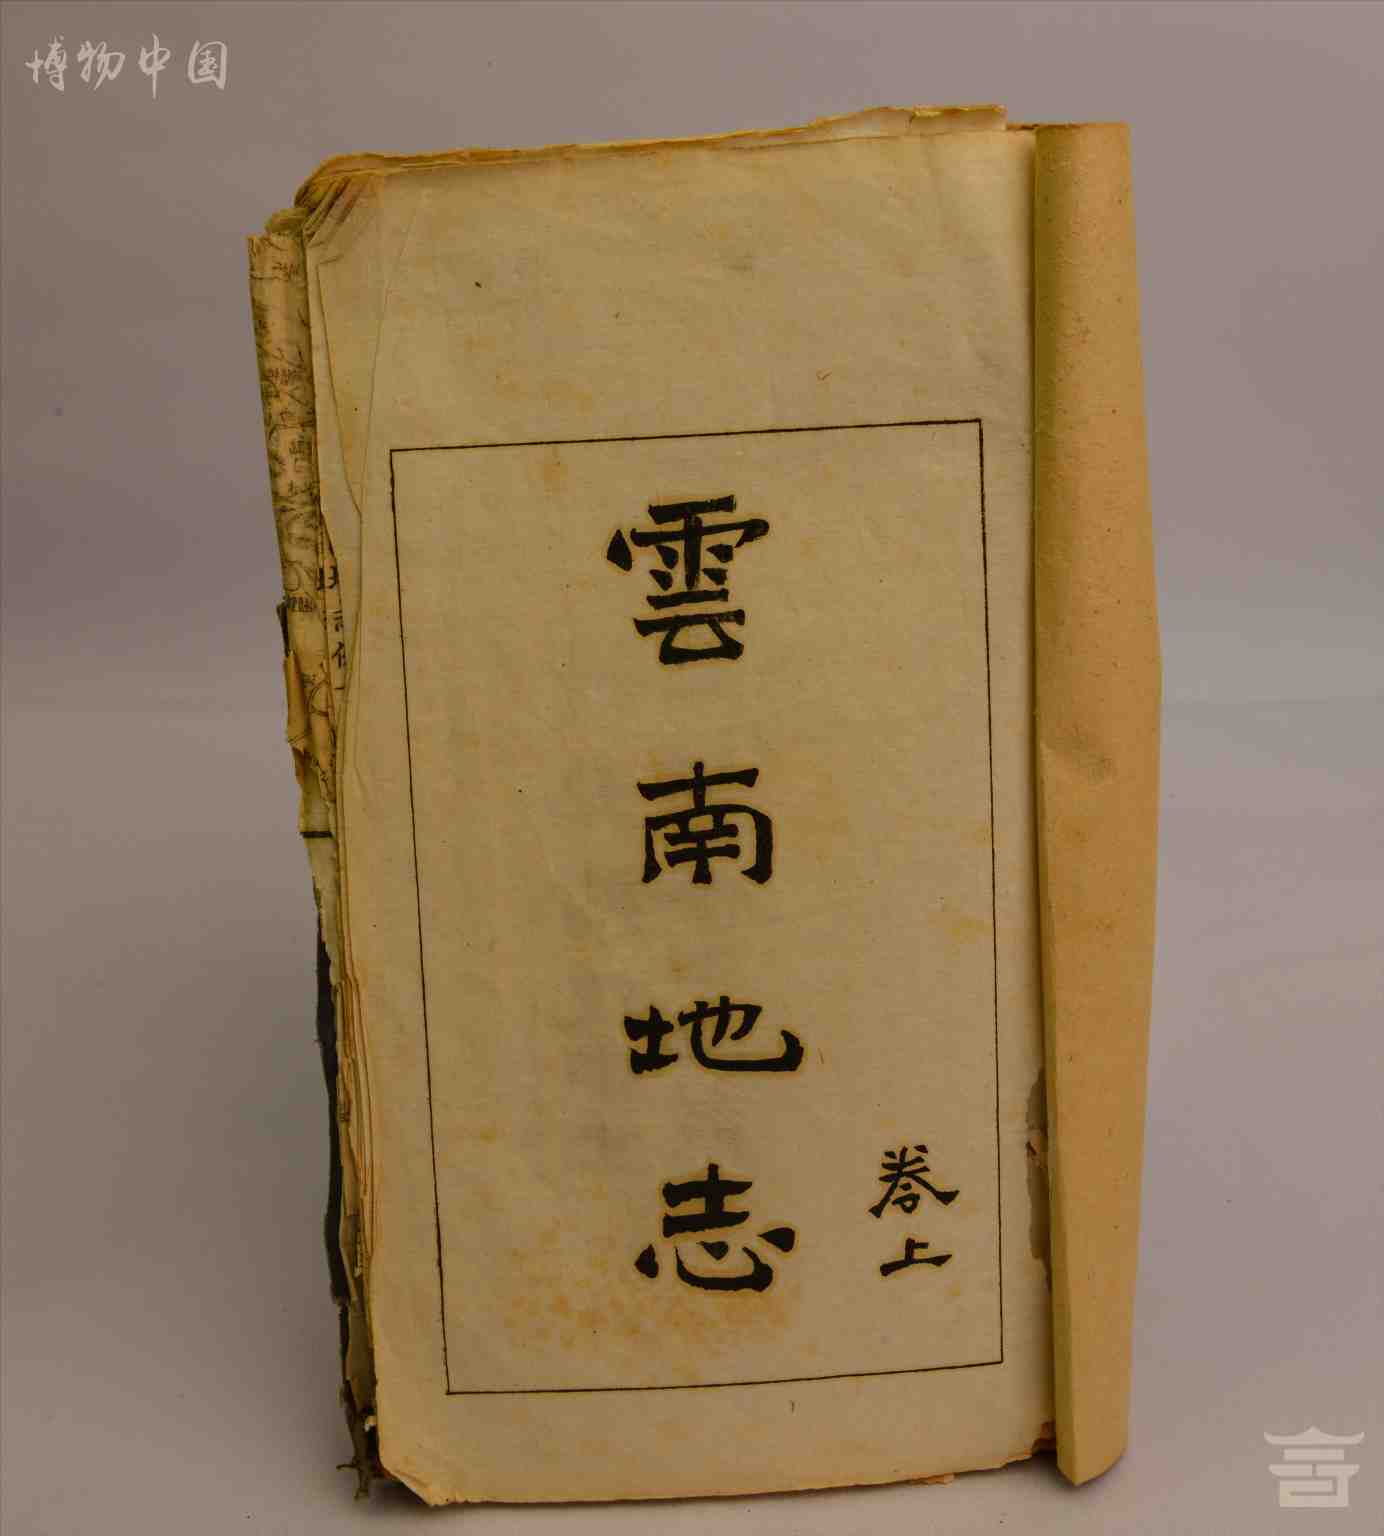 博物中国
雲南地志
卷上